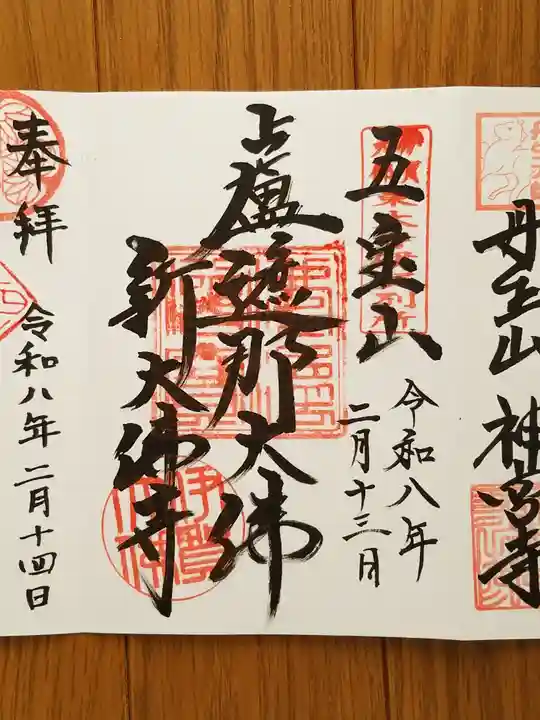 丹生山
神宮寺
五宝山
令和八年
二月十三日
上
盧遮那大佛
新大佛寺
奉拝
令和八年二月十四日